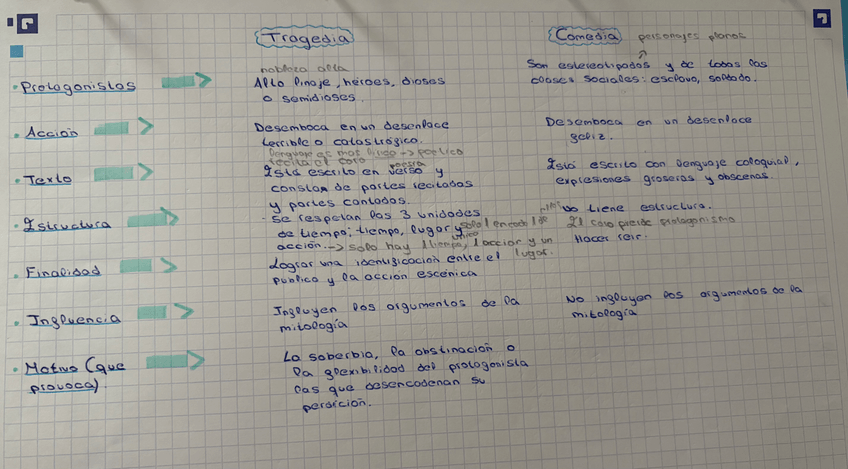 Tragedia
Comedia
personajes planos
nobleza alta
· Protagonistas
Alto linaje, héroes, dioses
o semidioses.
Son estereotipados y de todas las
clases sociales: esclavo, soldado.
· Acción
Desemboca en un desenlace
terrible o catastrófico.
Desemboca en un desenlace
feliz.
· Texto
lenguaje es mas lírico → poético
recita el coro
poesía
Está escrito en verso y
constan de partes recitadas
y partes cantadas.
Está escrito con lenguaje coloquial,
expresiones groseras y obscenas.
· Estructura
· Se respetan las 3 unidades
de tiempo; tiempo, lugar y
acción. → solo hay 1 tiempo, 1 accion y un
lugar.
No tiene estructura.
El coro pierde protagonismo
· Finalidad
Lograr una identificación entre el
público y la acción escénica
Hacer reir.
· Influencia
Influyen los argumentos de la
mitología
No influyen los argumentos de la
mitología
· Motivo (que
provoca)
La soberbia, la obstinación o
la flexibilidad del protagonista
las que desencadenan su
perdición.